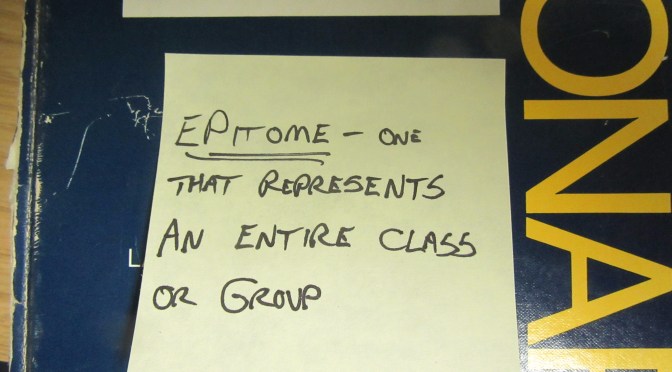 EPITOME – ONE
THAT REPRESENTS
AN ENTIRE CLASS
OR GROUP
ONA
L